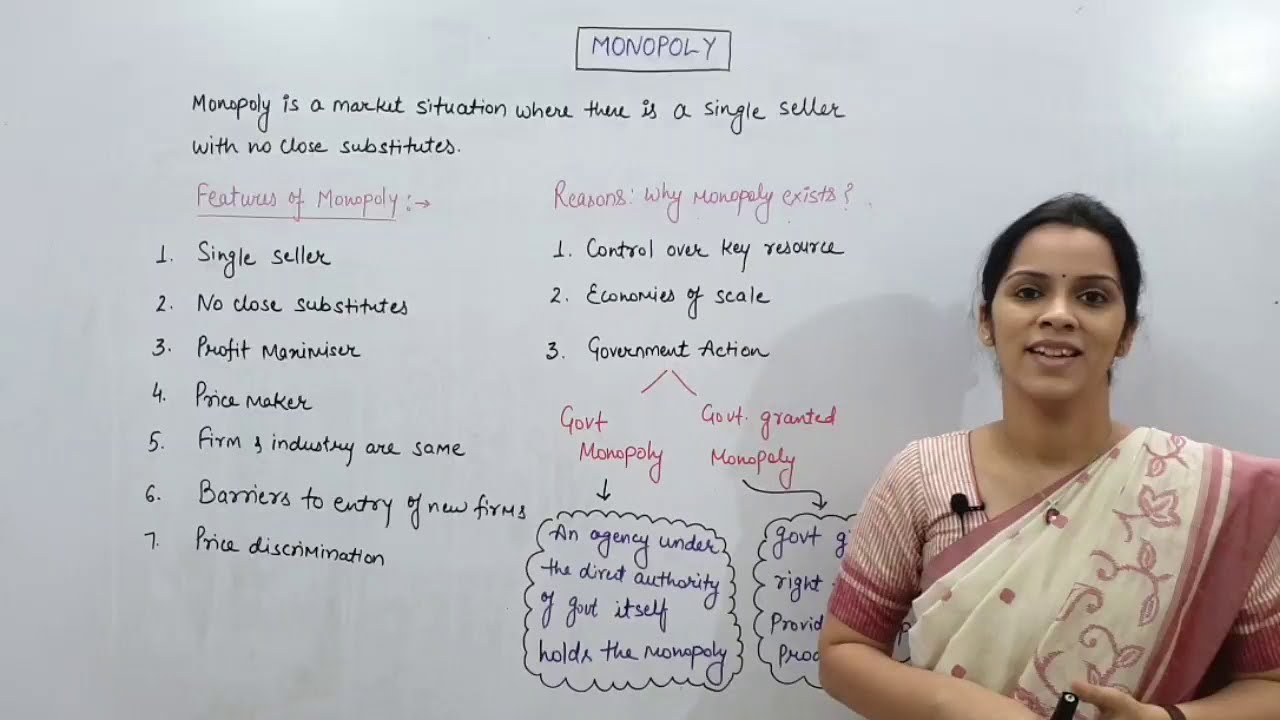 MONOPOLY
Monopoly is a market situation where there is a single seller
with no close substitutes.
Features of Monopoly :→
1. Single seller
2. No close substitutes
3. Profit Maximiser
4. Price maker
5. Firm & industry are same
6. Barriers to entry of new firms
7. Price discrimination
Reasons: Why monopoly exists?
1. Control over key resource
2. Economies of scale
3. Government Action
Govt
Monopoly
Govt. granted
Monopoly
An agency under
the direct authority
of govt itself
holds the monopoly
govt
right